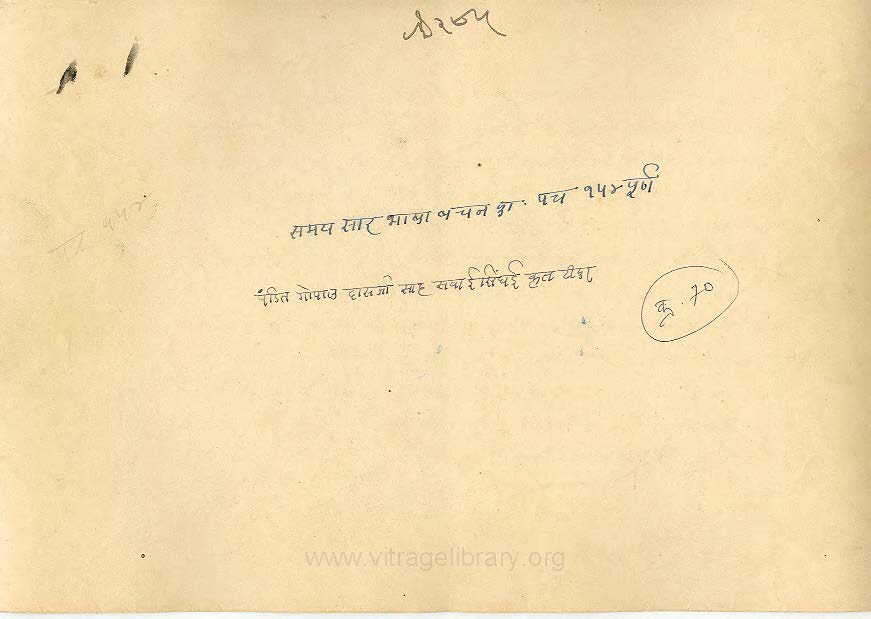 समय सार भाषा वचनका. पत्र १५४ पूर्ण
पंडित गोपाल दासजी साह सवाई सिंघई कृत टीका
क्र. 70
www.vitragelibrary.org